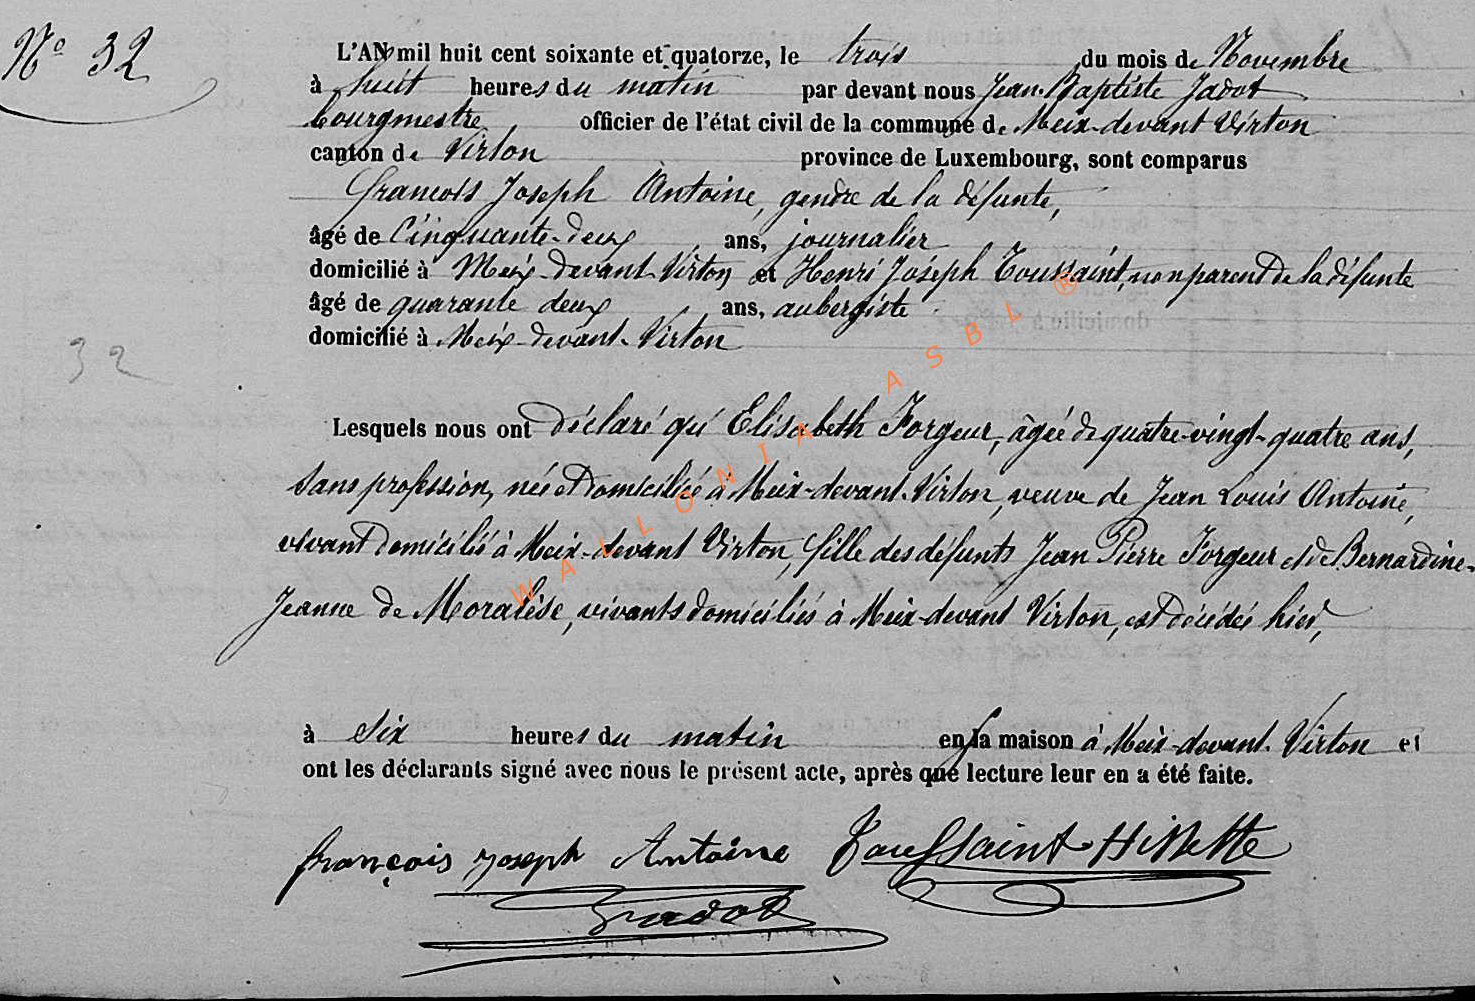 N° 32
L'AN mil huit cent soixante et quatorze, le trois du mois de Novembre
à huit heures du matin par devant nous Jean-Baptiste Jadot
bourgmestre officier de l'état civil de la commune de Meix-devant Virton
canton de Virton province de Luxembourg, sont comparus
François Joseph Antoine, gendre de la défunte,
âgé de Cinquante-deux ans, journalier
domicilié à Meix-devant-Virton et Henri Joseph Toussaint, non parent de la défunte
âgé de quarante deux ans, aubergiste
domicilié à Meix-devant-Virton
32
Lesquels nous ont déclaré qu'Elisabeth Forgeur, âgée de quatre-vingt-quatre ans,
sans profession, née et domiciliée à Meix-devant-Virton, veuve de Jean Louis Antoine,
vivant domicilié à Meix-devant Virton, fille des défunts Jean Pierre Forgeur et de Bernardine-
Jeanne de Moralèse, vivants domiciliés à Meix-devant Virton, est décédée hier,
à six heures du matin en sa maison à Meix-devant-Virton et
ont les déclarants signé avec nous le présent acte, après que lecture leur en a été faite.
françois joseph Antoine Toussaint-Hillette
Jadot
WALLONIA ASBL ®